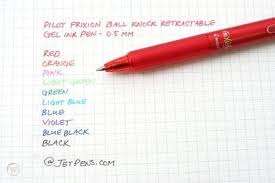 PILOT FRIXION BALL KNOCK RETRACTABLE
GEL INK PEN - 0.5 MM
RED
ORANGE
PINK
LIGHT GREEN
GREEN
LIGHT BLUE
BLUE
VIOLET
BLUE BLACK
BLACK
@JETPENS.COM